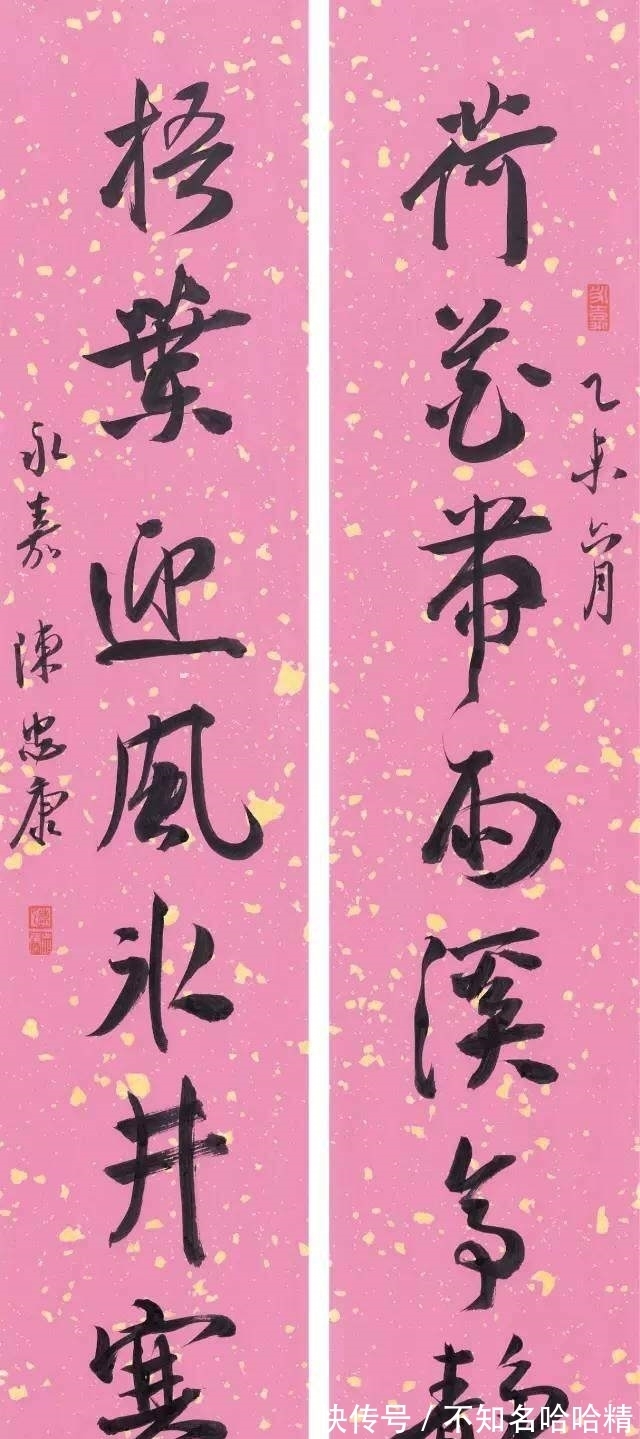 荷花帶雨溪亭靜
乙未六月
梧葉迎風氷井寒
永嘉 陳忠康
快传号 / 不知名哈哈精